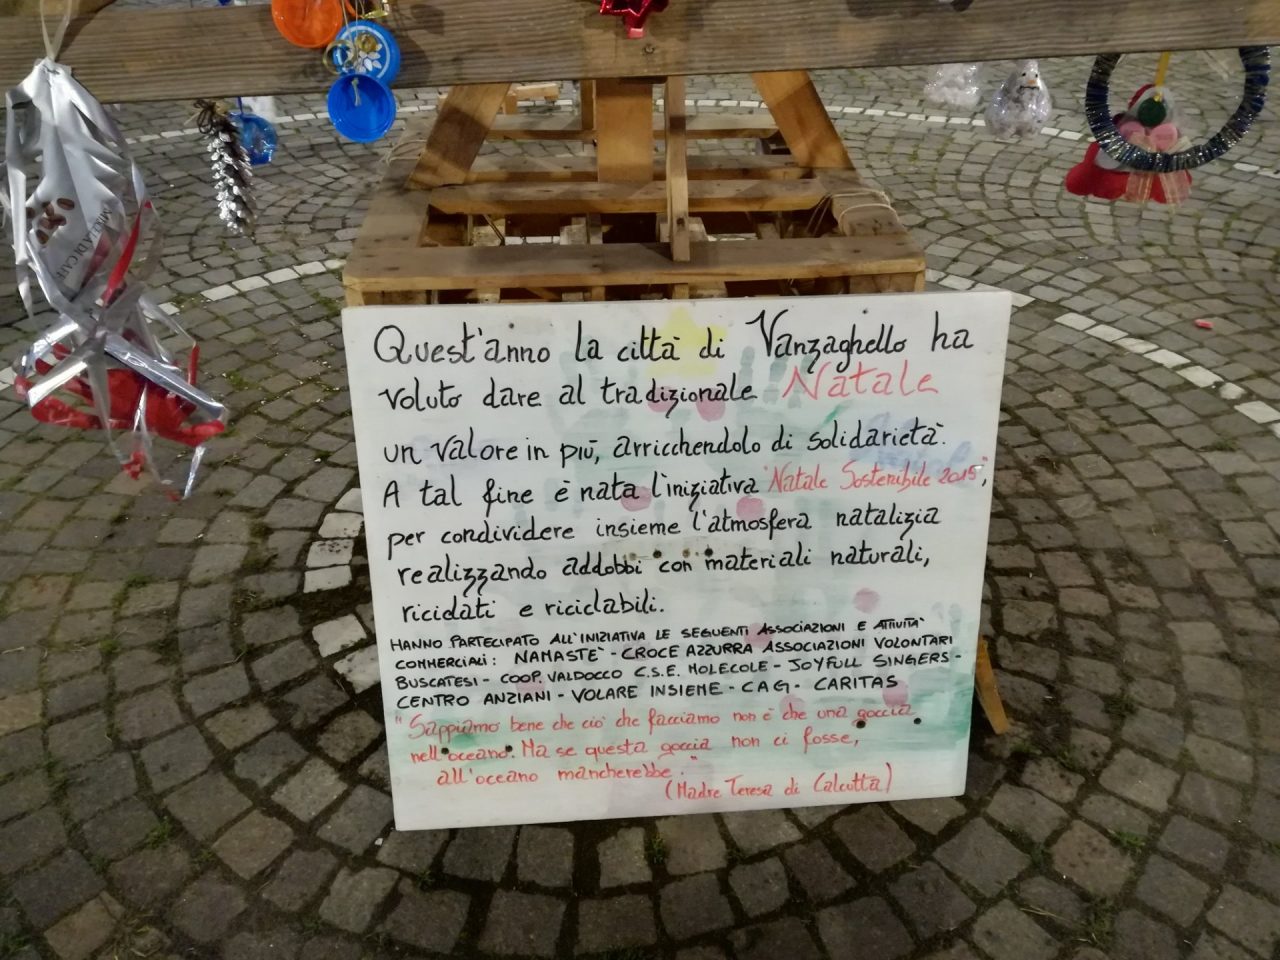 Quest'anno la città di Vanzaghello ha
voluto dare al tradizionale Natale
un valore in più, arricchendolo di solidarietà.
A tal fine è nata l'iniziativa "Natale Sostenibile 2015",
per condividere insieme l'atmosfera natalizia
realizzando addobbi con materiali naturali,
riciclati e riciclabili.
HANNO PARTECIPATO ALL'INIZIATIVA LE SEGUENTI ASSOCIAZIONI E ATTIVITÀ
COMMERCIALI: NAMASTÈ - CROCE AZZURRA ASSOCIAZIONI VOLONTARI
BUSCATESI - COOP. VALDOCCO C.S.E. MOLECOLE - JOYFULL SINGERS -
CENTRO ANZIANI - VOLARE INSIEME - CAG - CARITAS
"Sappiamo bene che ciò che facciamo non è che una goccia
nell'oceano. Ma se questa goccia non ci fosse,
all'oceano mancherebbe."
(Madre Teresa di Calcutta)